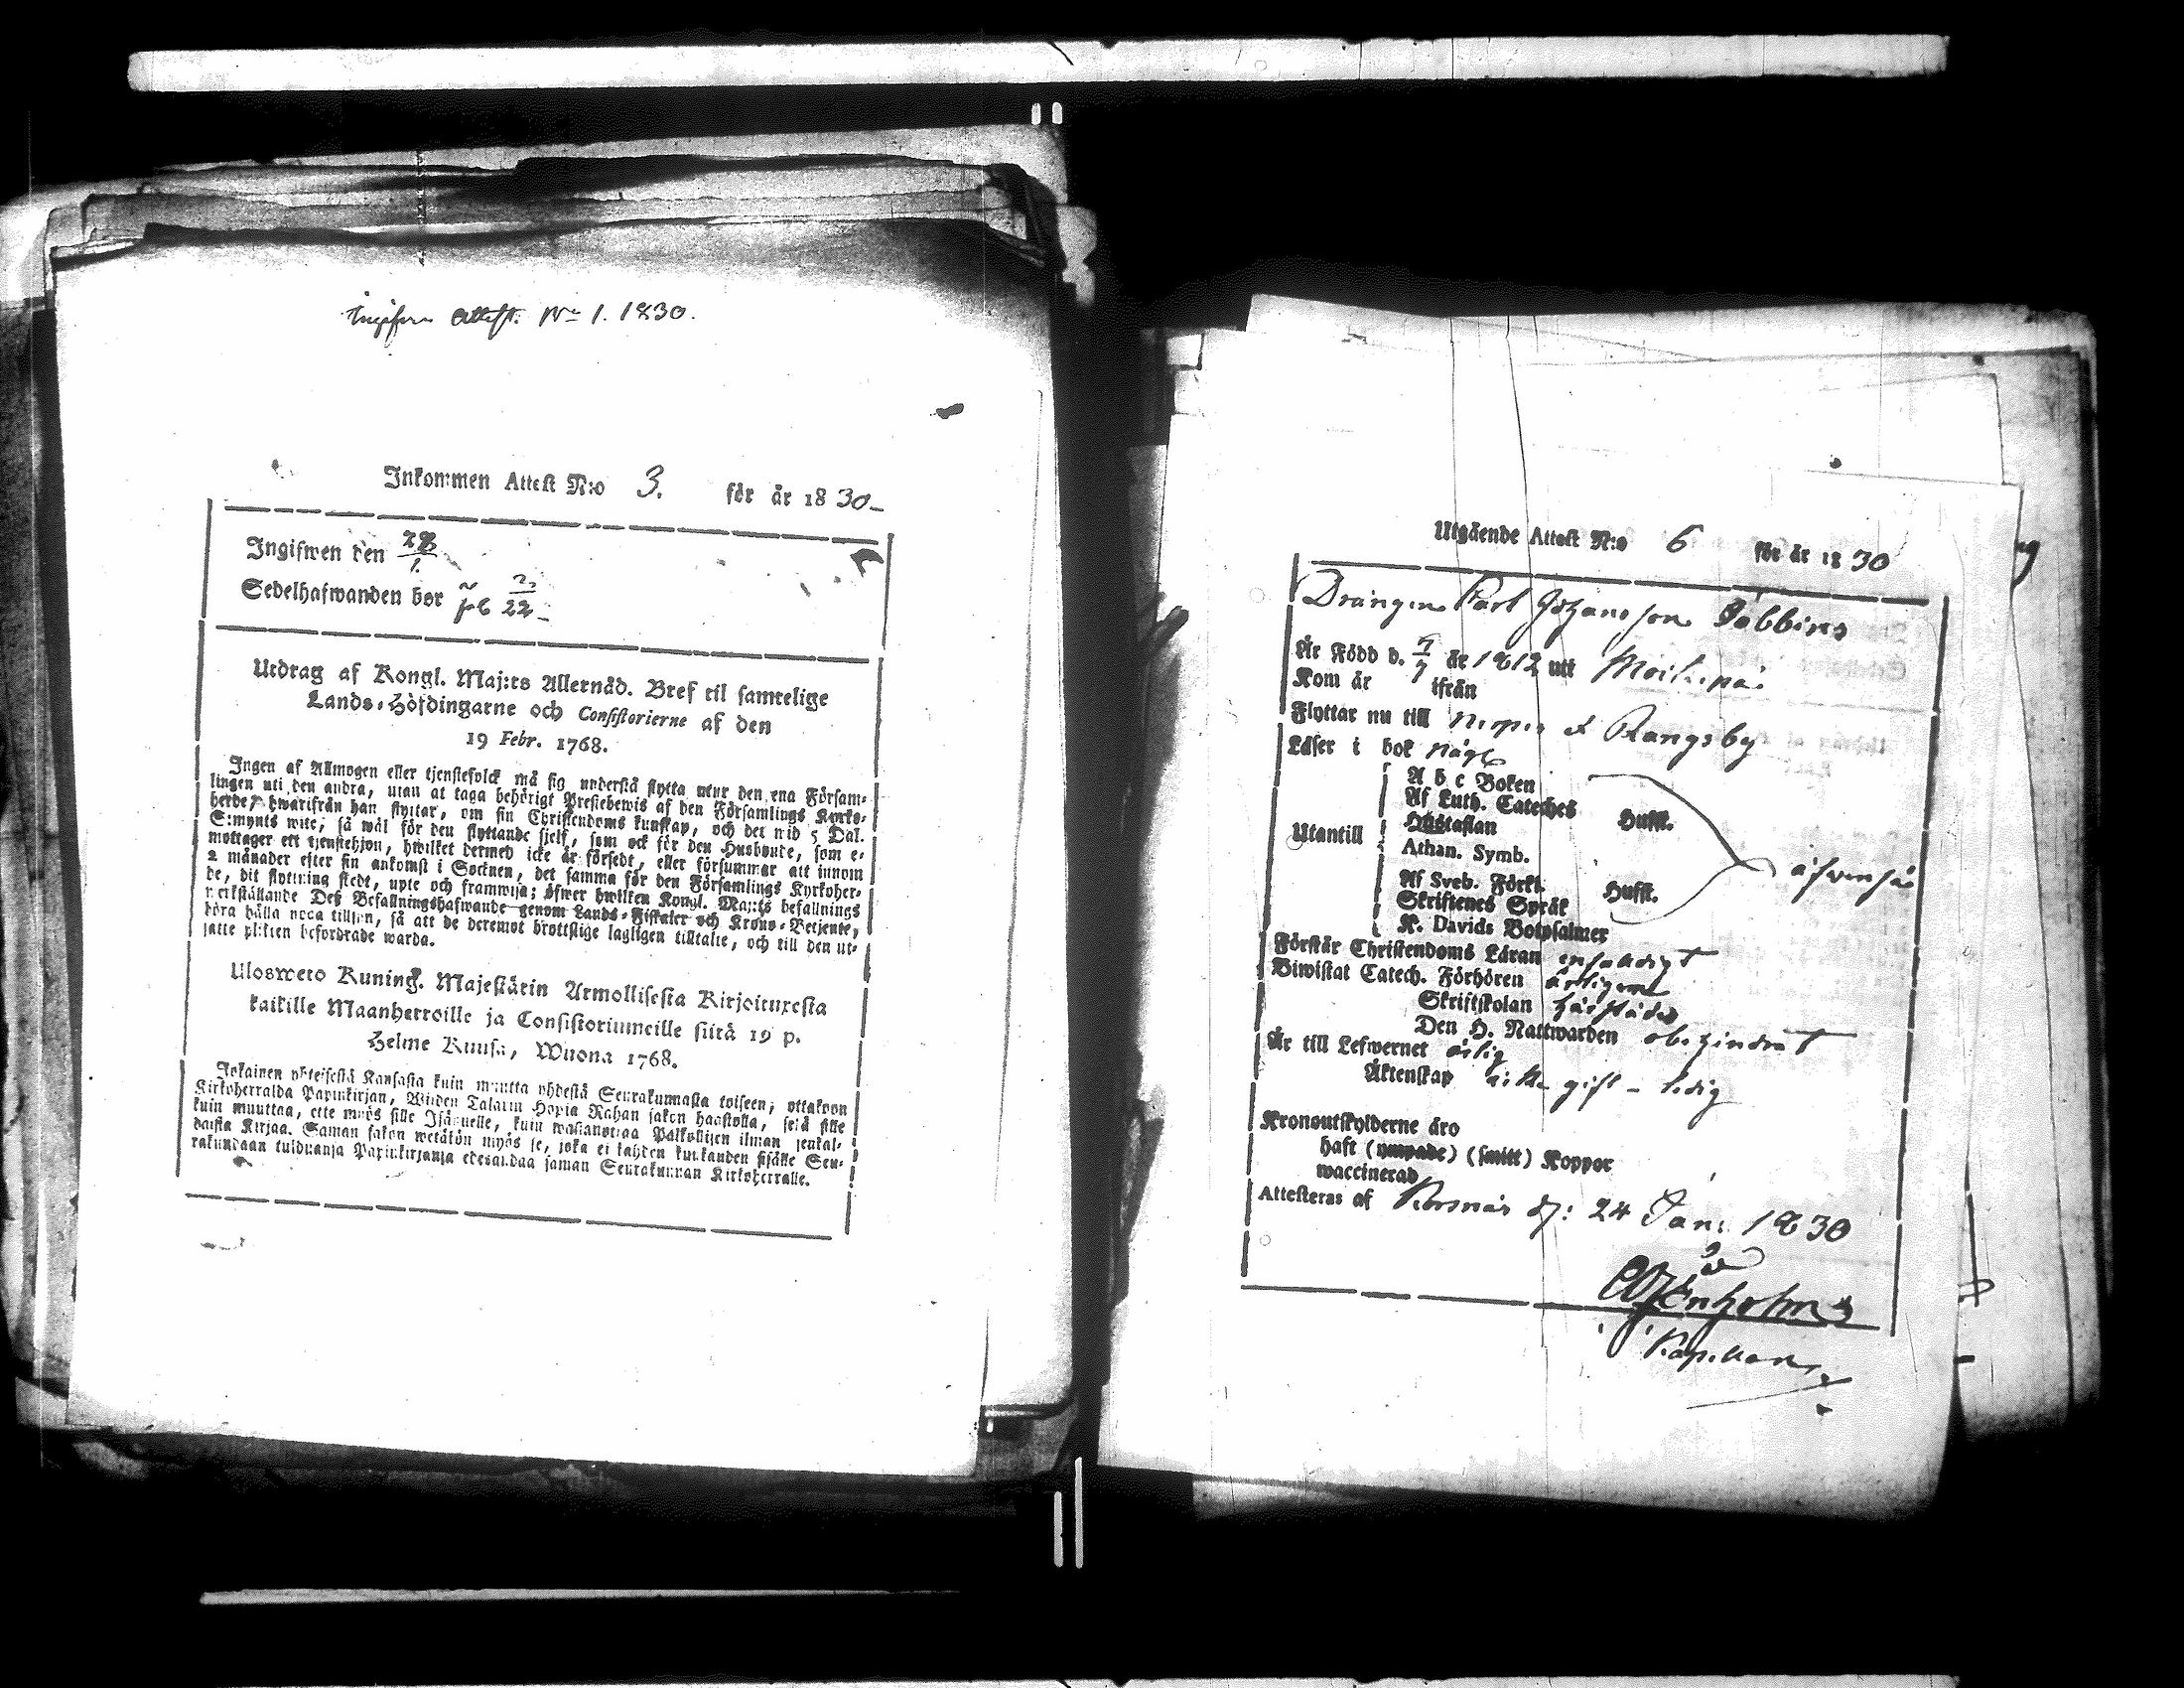 Ingifven Attest. No 1. 1830.
Inkommen Attest N:o 3. för år 1830
Ingifwen den 28/1
Sedelhafwanden bor
Utdrag af Kongl. Maj:ts Allernåd. Bref til samtelige
Lands-Höfdingarne och Consistorierne af den
19 Febr. 1768.
Ingen af Allmogen eller tjenstefolck må sig understå flytta utur den ena Försam-
lingen uti den andra, utan at taga behörigt Prestebewis af den Församlings Kyrko-
herde, hwarifrån han flyttar, om sin Christendoms kunskap, och det wid 5 Dal.
S:mynts wite; så wäl för den flyttande sjelf, som ock för den Husbonde, som e-
mottager ett tjenstehjon, hwilket dermed icke är försedt, eller försummar att innom
2 månader efter sin ankomst i Socknen, det samma för den Församlings Kyrkoher-
de, dit flyttning skedt, upte och framwisa; öfwer hwilken Kongl. Maj:ts befallnings
werkställande Deß Befallningshafwande genom Lands-Fiskaler och Krono-Betjente,
böra hålla noga tillsyn, så att de deremot brottslige lagligen tilltalte, och till den ut-
satte plikten befordrade warda.
Ulosweto Kuning. Majestätin Armollisesta Kirjoituxesta
kaikille Maanherroille ja Consistoriumeille siitä 19 p.
Helme Kuusa, Wuona 1768.
Jokainen yhteisestä Kansasta kuin muutta yhdestä Seurakunnasta toiseen, ottakoon
Kirkoherralda Papinkirjan, Wiiden Talarin Hopia Rahan sakon haastolla, sekä sille
kuin muuttaa, ette myös sille Isännelle, kuin wastanottaa Palkollisen ilman senkal-
daista Kirjaa. Saman sakon wetätön myös se, joka ei kahden kuukauden sisälle Seu-
rakundaan tulduansa Papinkirjansa edesandaa saman Seurakunnan Kirkoherralle.
Utgående Attest N:o 6 för år 1830
Drängen Karl Johansson Jåbbins
Är Född d. 7/7 år 1812 uti Moikipää
Kom år ifrån
Flyttar nu till Nerpes & Rangsby
Läser i bok någl
A b c Boken
Af Luth. Cateches
Hustaflan
Hufft.
Utantill
Athan. Symb.
äfvenså
Af Sveb. Förkl.
Hufft.
Skriftenes Språk
K. Davids Botpsalmer
Förstår Christendoms Läran enfaldigt
Biwistat Catech. Förhören årligen
Skriftskolan härstädes
Den H. Nattwarden obehindrat
Är till Lefwernet ärlig
Äktenskap icke gift - ledig
Kronoutskylderne äro
haft (ympade) (smitt) Koppor
waccinerad
Attesteras af Korsnäs d: 24 Jan: 1830
Kapellan